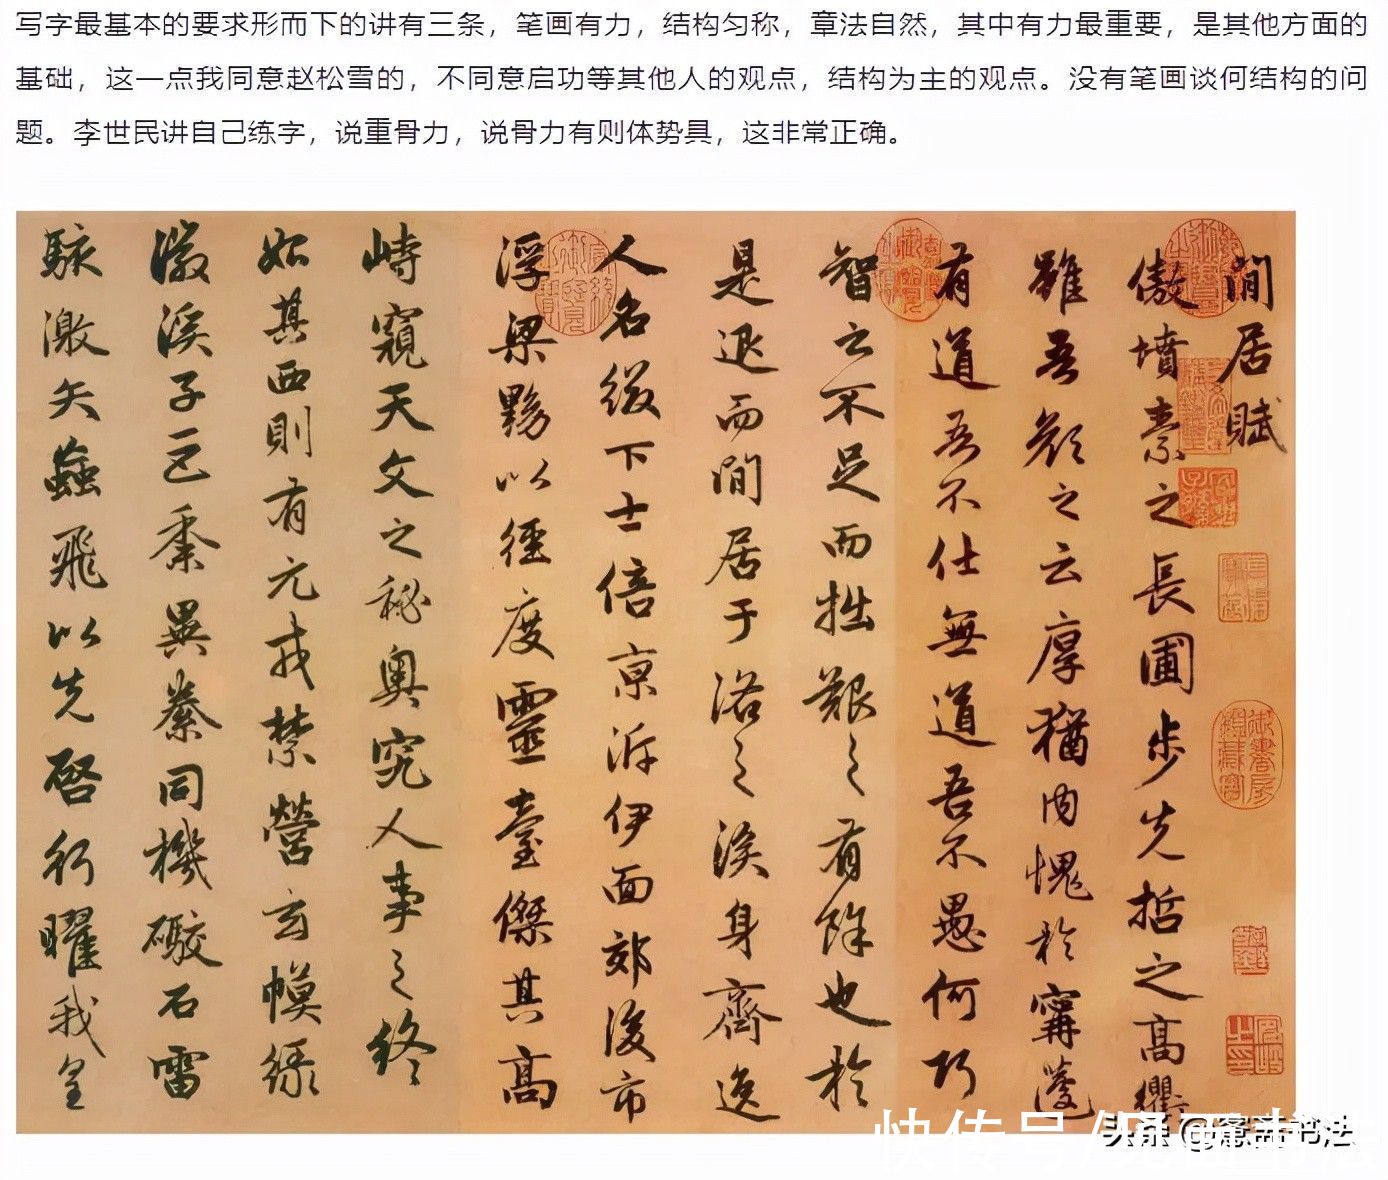 写字最基本的要求形而下的讲有三条，笔画有力，结构匀称，章法自然，其中有力最重要，是其他方面的
基础，这一点我同意赵松雪的，不同意启功等其他人的观点，结构为主的观点。没有笔画谈何结构的问
题。李世民讲自己练字，说重骨力，说骨力有则体势具，这非常正确。
閒居賦
傲墳素之長圃步先哲之高衢
雖吾顏之云厚猶内愧於寗蘧
有道吾不仕無道吾不愚何巧
智之不足而拙艱之有餘也於
是退而閒居于洛之涘身齊逸
人名綴下士倍京泝伊面郊後市
浮梁黝以徑度靈臺傑其高
峙窺天文之秘奧究人事之終
始其西則有元戎禁營玄幙綠
徽溪子巨黍異絭同機礮石雷
駭激矢蝱飛以先啓行曜我皇
快传号/
头条 @
书法